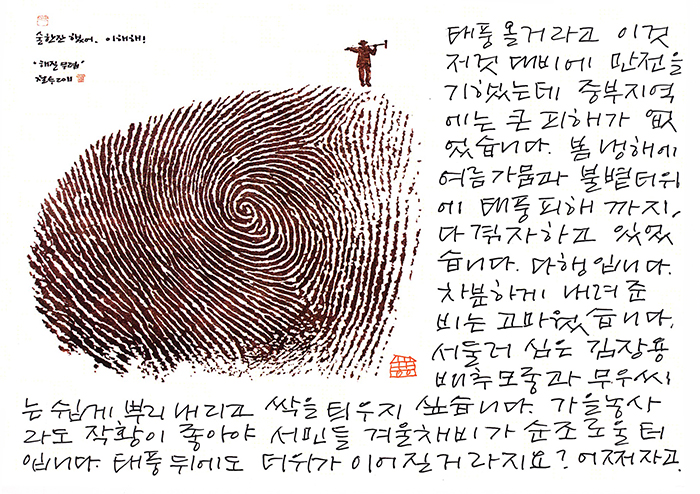 술한잔 했어. 이해해!
"해질 무렵"
철수 2011
태풍 올거라고 이것
저것 대비에 만전을
기했는데 중부지역
에는 큰 피해가 없
었습니다. 봄 냉해에
여름가뭄과 불볕더위
에 태풍피해 까지,
다 겪자하고 있었
습니다. 다행입니다.
차분하게 내려준
비는 고마웠습니다.
서둘러 심은 김장용
배추모종과 무우씨
는 쉽게 뿌리내리고 싹을 틔우지 싶습니다. 가을농사
라도 작황이 좋아야 서민들 겨울채비가 순조로울 터
입니다. 태풍 뒤에도 더위가 이어질거라지요? 어쩌자고.